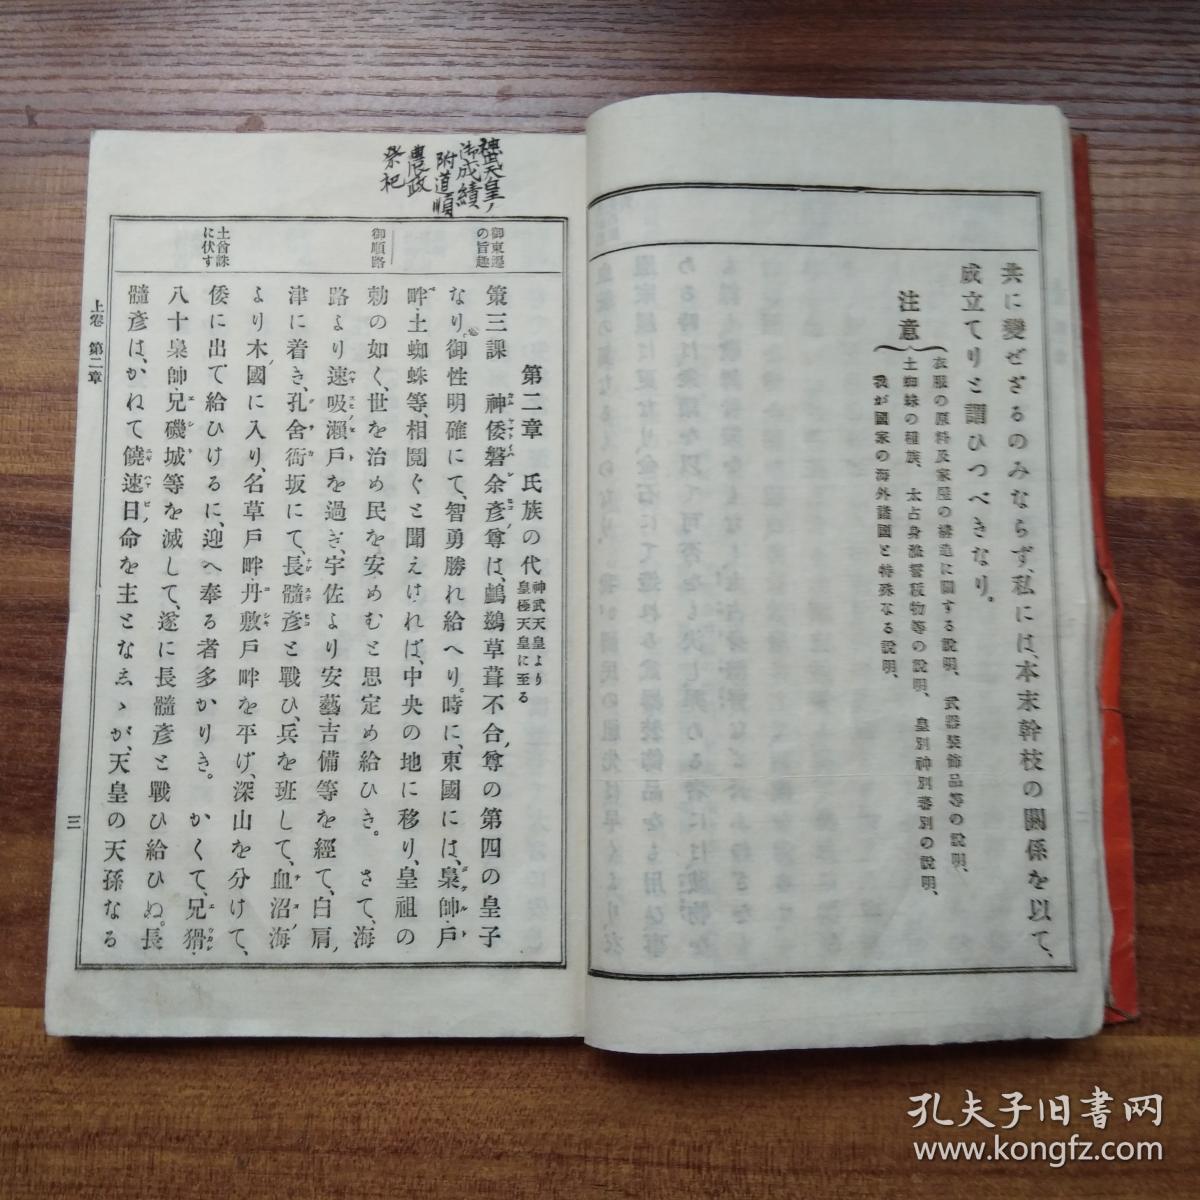 共に變ぜざるのみならず、私には、本末幹枝の關係を以て、
成立てりと謂ひつべきなり。
注意
衣服の原料及家屋の構造に關する説明、武器裝飾品等の説明、
土蜘蛛の種族、太占身滌誓稜物等の説明、皇別神別蕃別の説明、
我が國家の海外諸國と特殊なる説明、
神武天皇ノ
御成績
附道順
農政
祭祀
御東遷の旨趣
御順路
土酋誅に伏す
第二章 氏族の代 神武天皇より皇極天皇に至る
第三課 神倭磐余彦尊は、鸕鷀草葺不合尊の第四の皇子
なり。御性明確にて、智勇勝れ給へり。時に、東國には、梟帥・戸
畔・土蜘蛛等、相鬩ぐと聞えければ、中央の地に移り、皇祖の
勅の如く、世を治め民を安めむと思定め給ひき。 さて、海
路より速吸瀬戸を過ぎ、宇佐より安藝・吉備等を經て、白肩ノ
津に着き、孔舍衙坂にて、長髓彦と戰ひ、兵を班して、血沼ノ海
より木ノ國に入り、名草戸畔・丹敷戸畔を平げ、深山を分けて、
倭に出で給ひけるに、迎へ奉る者多かりき。 かくて、兄猾・
八十梟帥・兄磯城等を滅して、遂に長髓彦と戰ひ給ひぬ。長
髓彦は、かねて饒速日ノ命を主となしゝが、天皇の天孫なる
上卷 第二章
三
孔夫子旧书网
www.kongfz.com